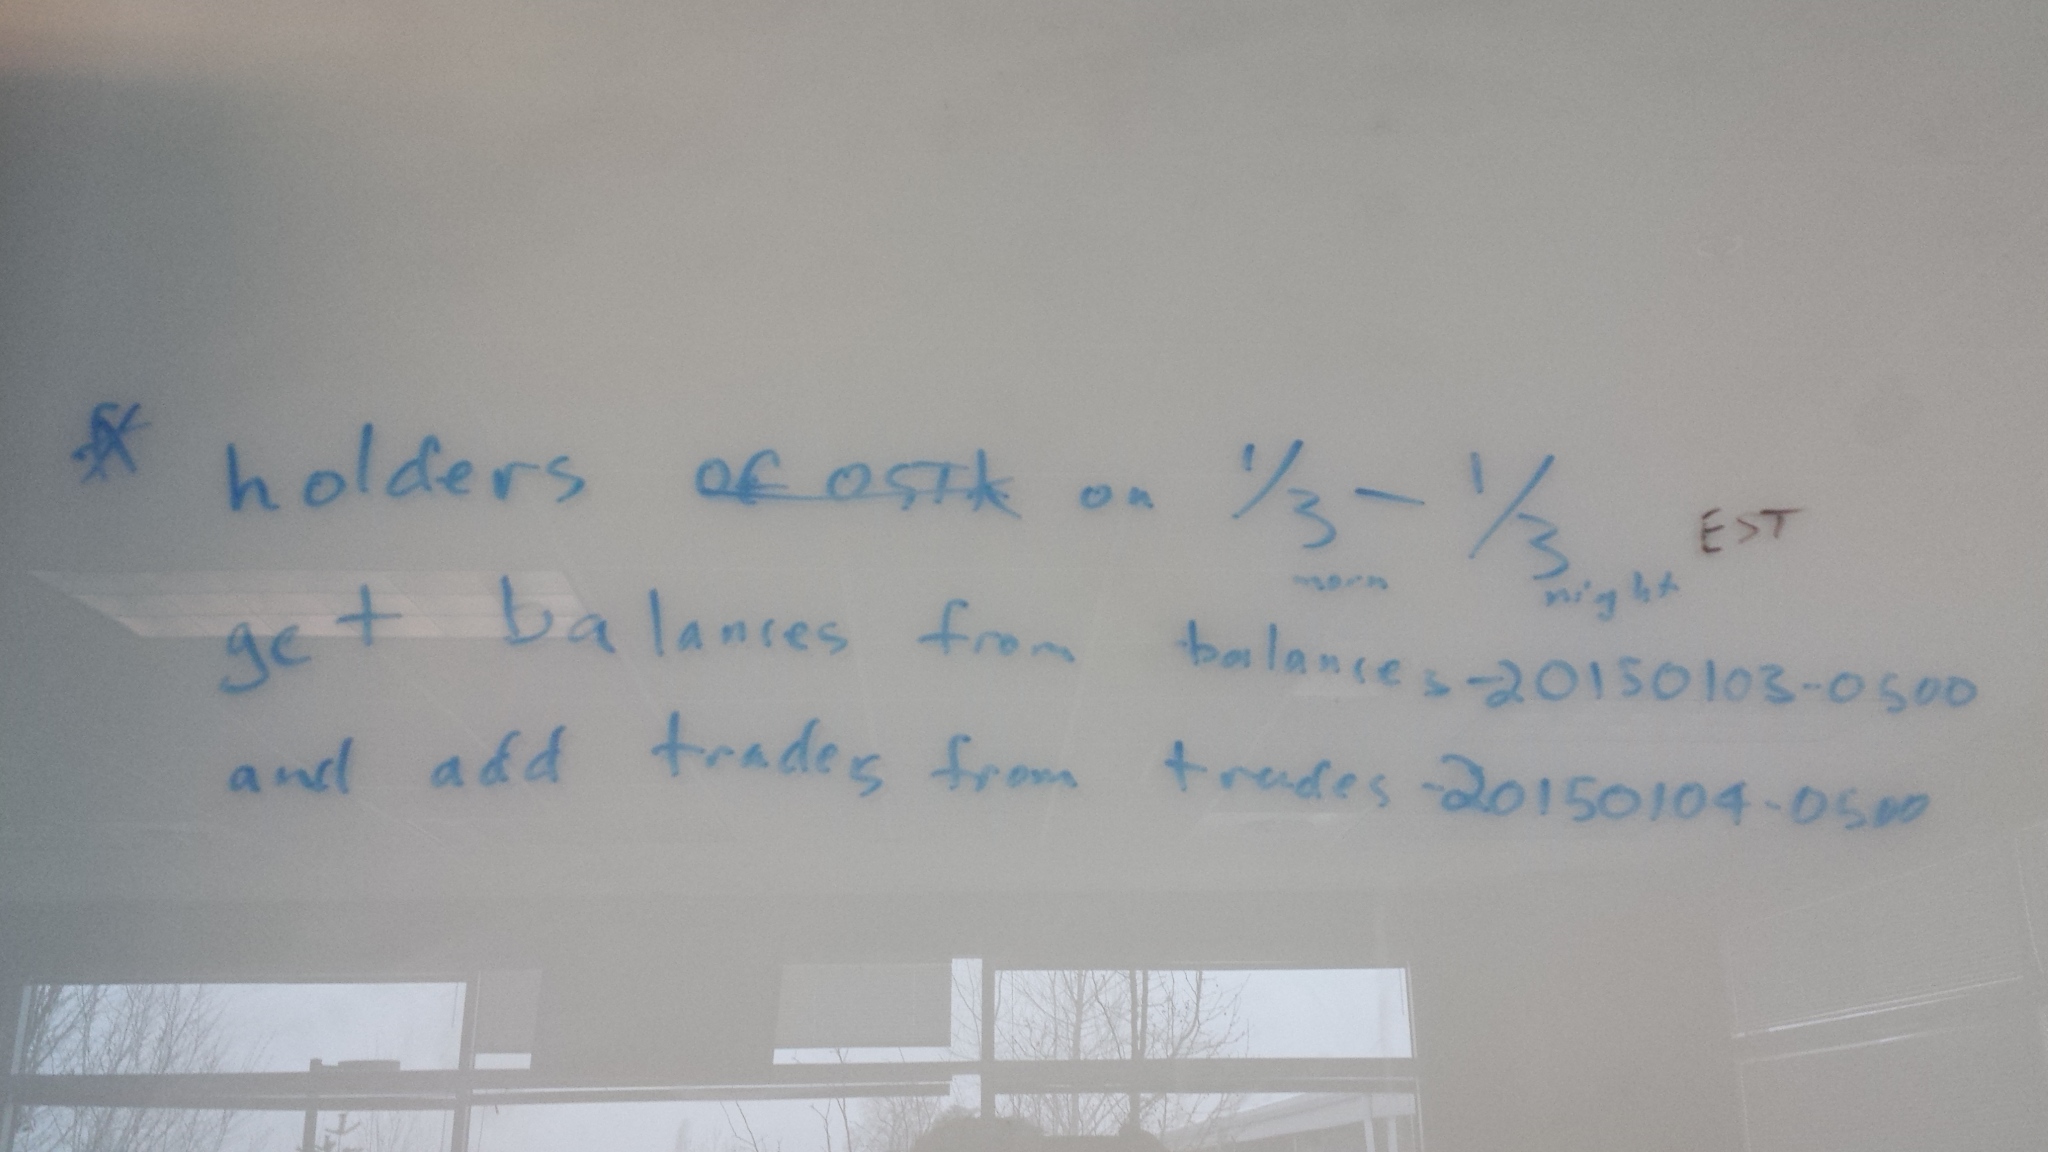 * holders of OSTK on 1/3 - 1/3 EST
morn night
get balances from balances-20150103-0500
and add trades from trades-20150104-0500